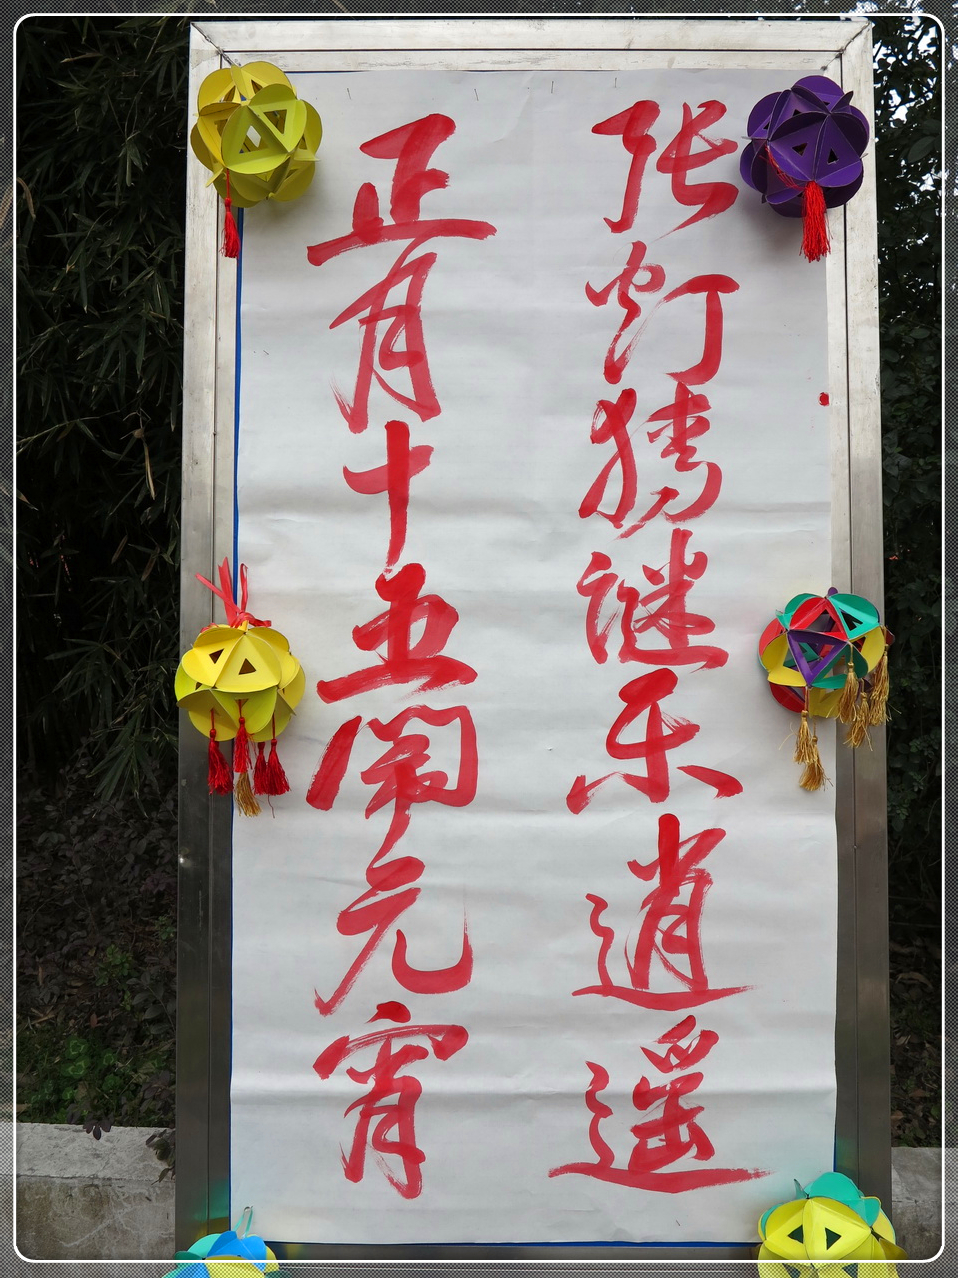 张灯猜谜乐逍遥
正月十五闹元宵